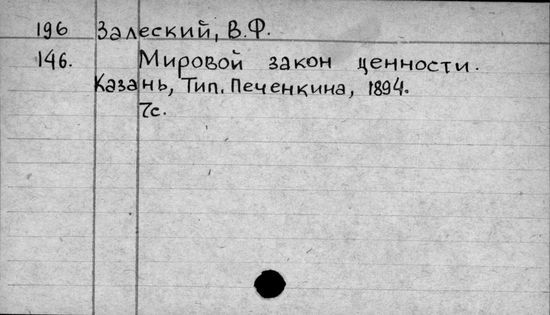 196 Залеский, В.Ф.
146. Мировой закон ценности.
Казань, Тип. Печенкина, 1894.
7с.